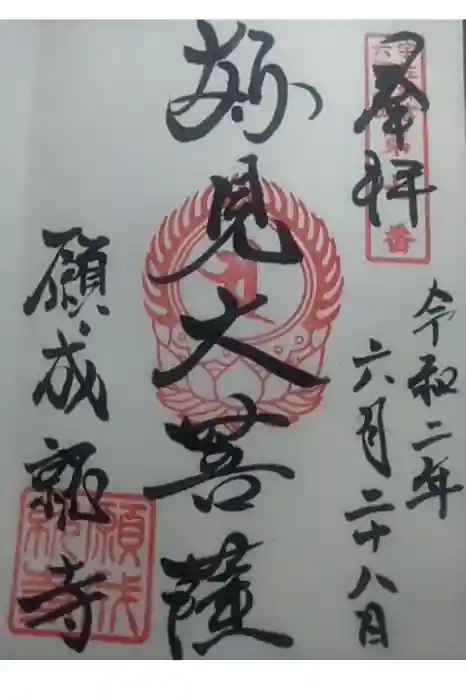 奉拝
番
令和二年
六月二十八日
妙見大菩薩
願成就寺
願成
就寺